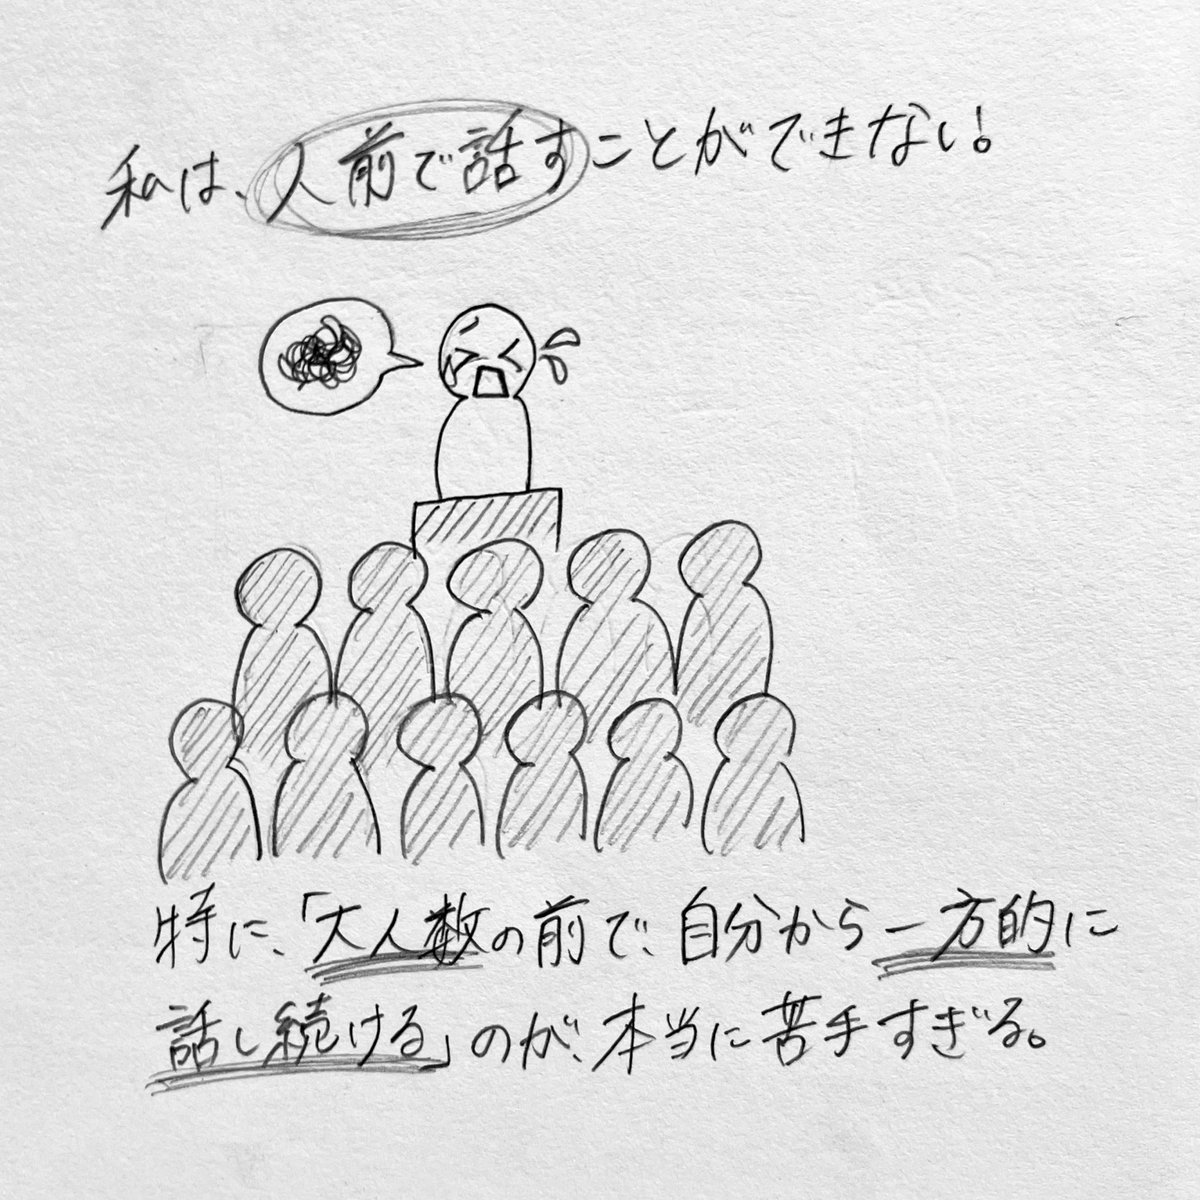 私は、人前で話すことができない!
特に、「大人数の前で、自分から一方的に
話し続ける」のが、本当に苦手すぎる。